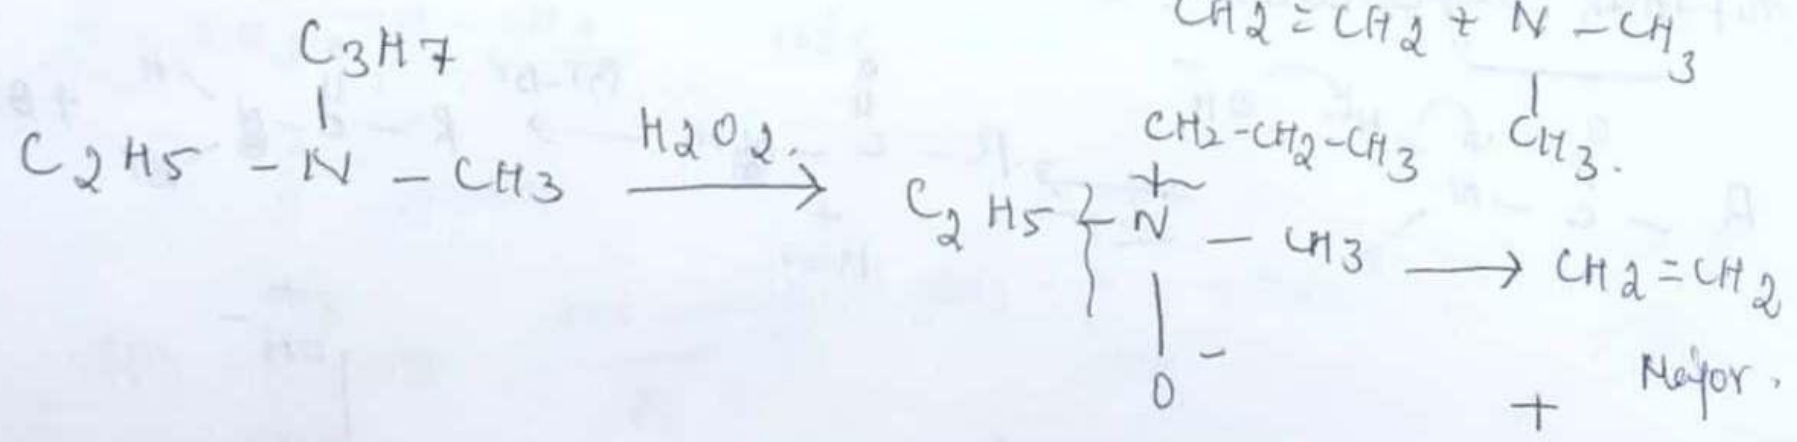 CH2=CH2 + N - CH3
|
CH3.
C3H7
|
C2H5 - N - CH3
H2O2.
CH2-CH2-CH3
+
C2H5 - N - CH3 → CH2=CH2
|
O -
Major.
+